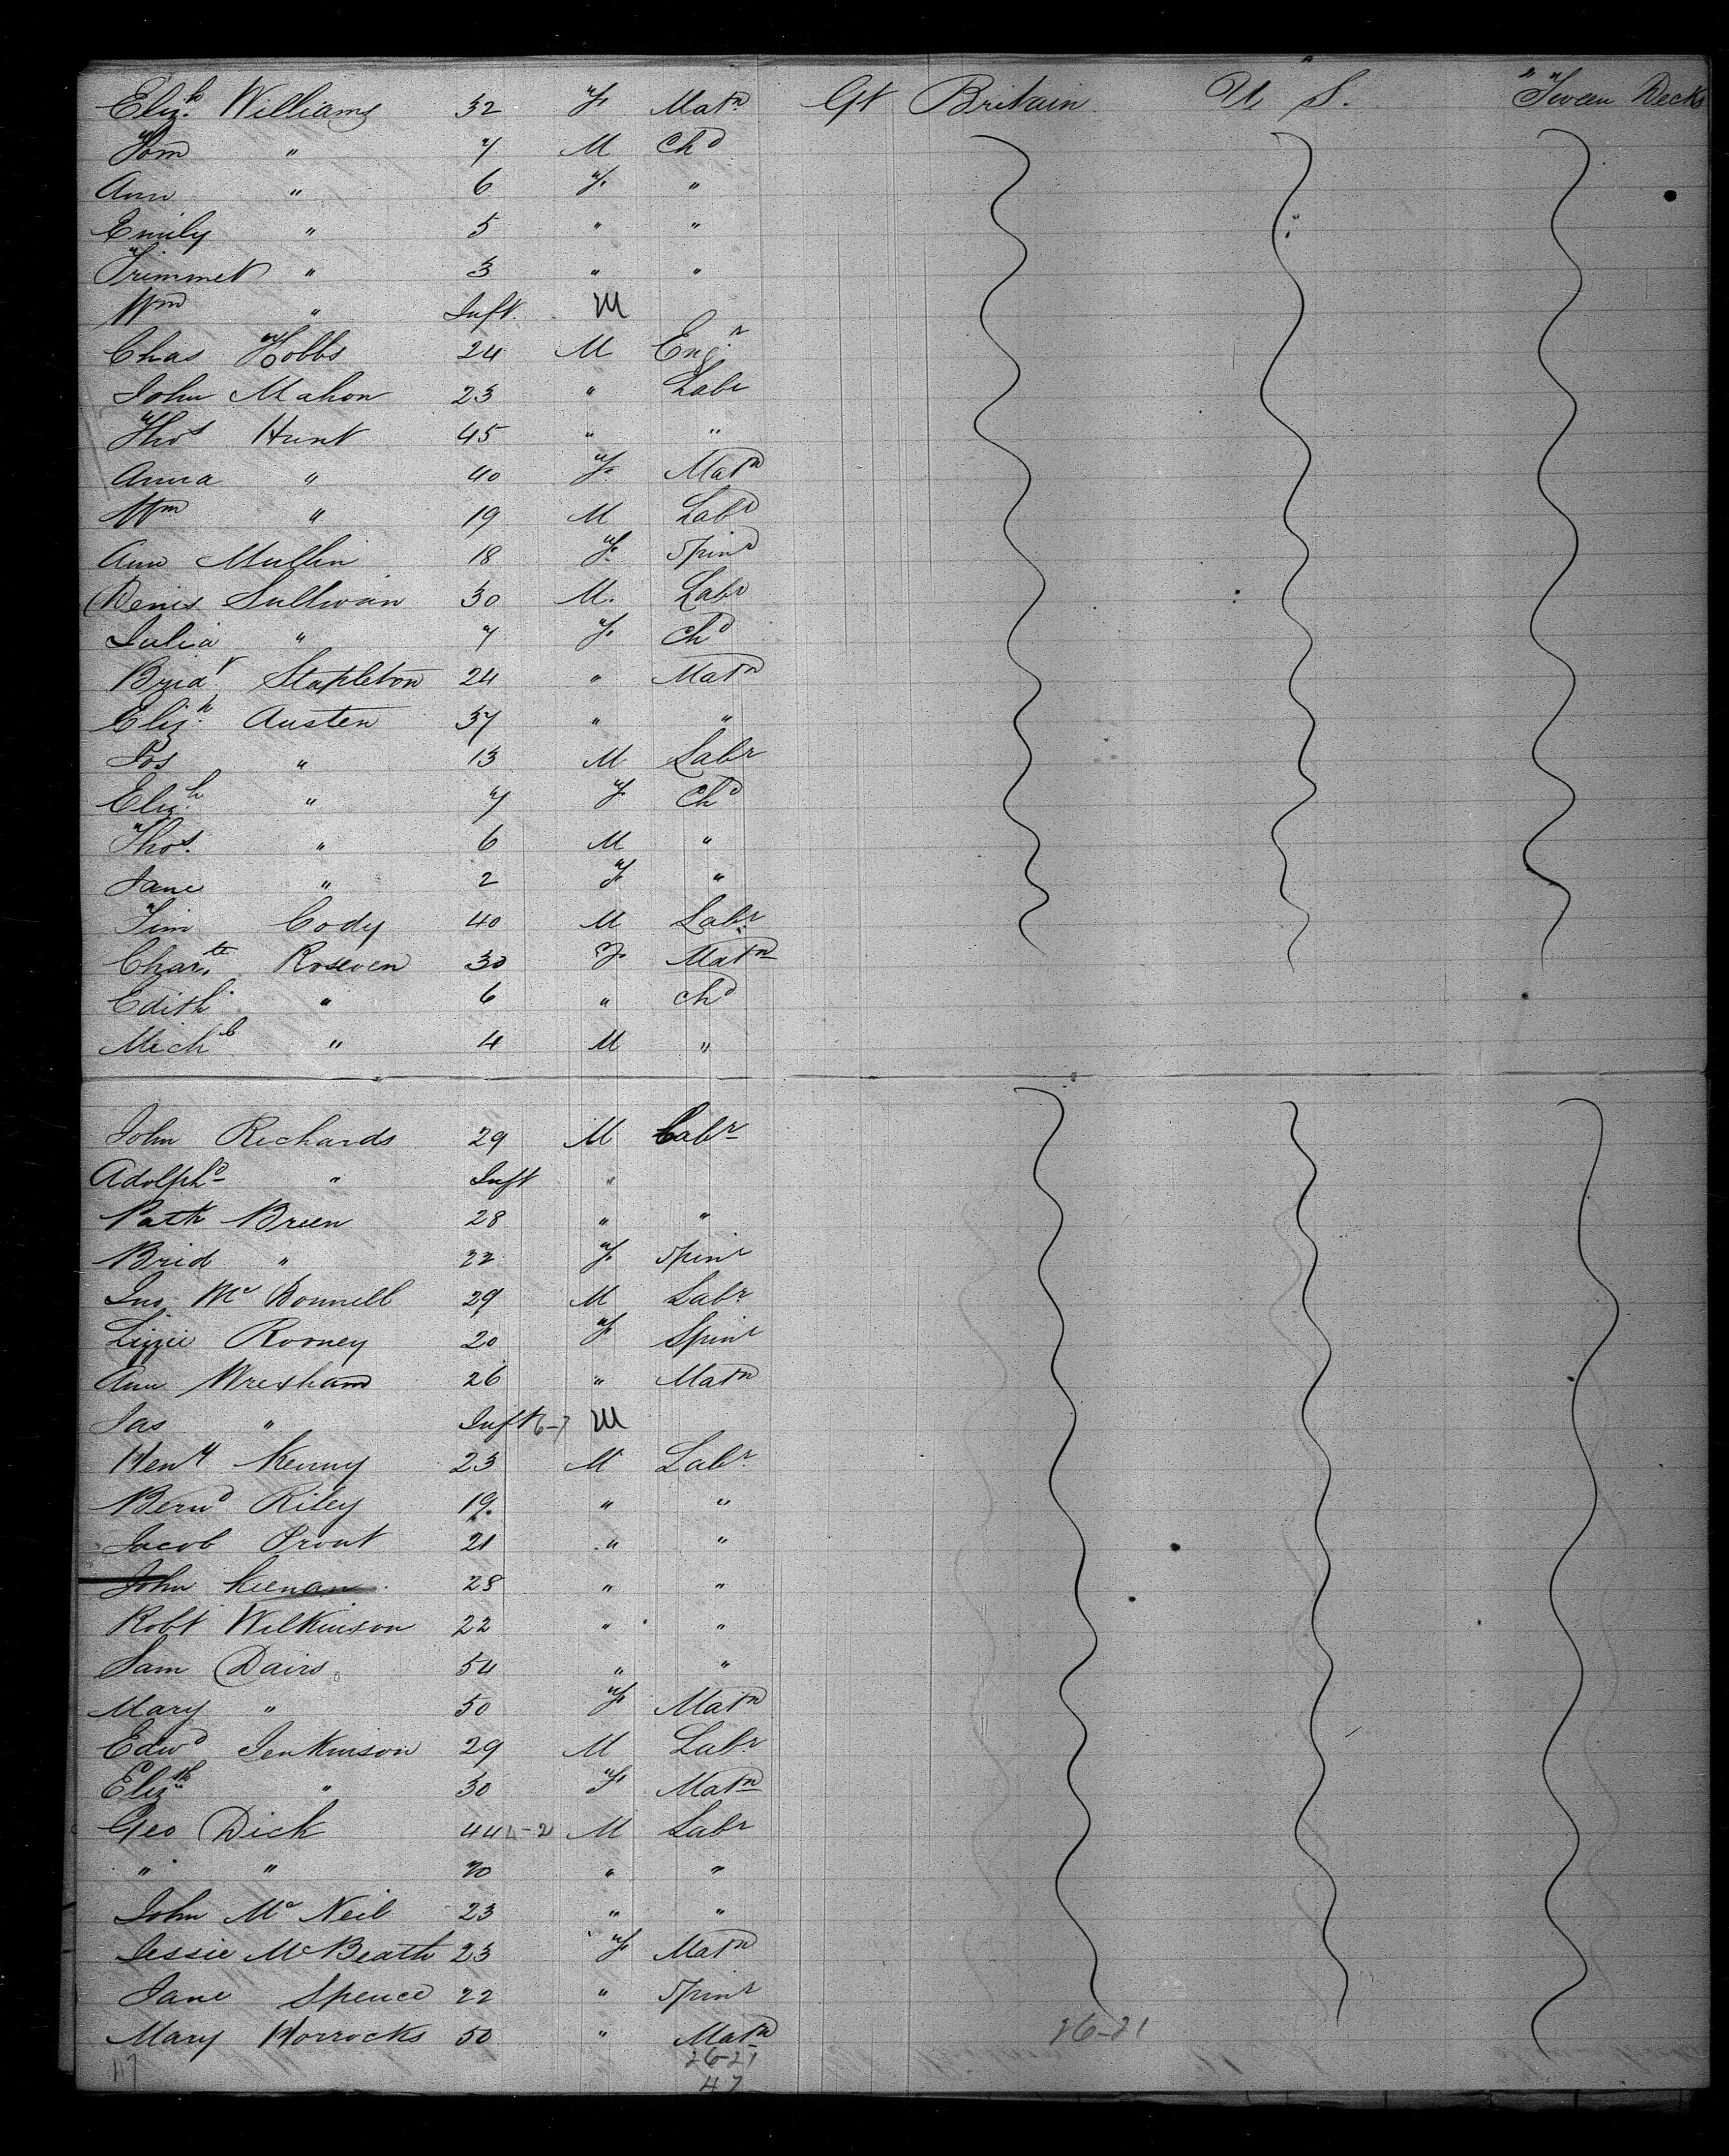 Eliz.h Williams 32 F. Matn Gt Britain U S. "Tween Decks
Tom " 7 M Chd
Ann " 6 F. "
Emily " 5 " "
Trimmet " 3 " "
Wm " Inft. M
Chas Hobbs 24 M Engr
John Mahon 23 " Labr
Thos Hunt 45 " "
Anna " 40 F. Matn
Wm " 19 M Labr
Ann Mullin 18 F. Spinr
Denis Sullivan 30 M. Labr
Julia " 7 F. Chd
Bridt Stapleton 24 " Matn
Eliz.h Austen 37 " "
Jos " 13 M Labr
Eliz.h " 7 F. Chd
Thos. " 6 M "
Jane " 2 F. "
Tim Cody 40 M Labr
Char.te Roseven 30 F. Matn
Edith " 6 " Chd
Michl " 4 M "
John Richards 29 M Labr
Adolphs " Inft "
Patk Breen 28 " "
Brid " 22 F. Spinr
Jno Mc Donnell 29 M Labr
Lizzie Rooney 20 F. Spinr
Ann Wrexham 26 " Matn
Jas " Inft 6-7 M
Heny Kenny 23 M Labr
Bernd Riley 19. " "
Jacob Prout 21 " "
John Keenan 28 " "
Robt Wilkinson 22 " "
Sam Dairs 54 " "
Mary " 50 F. Matn
Edwd Jenkinson 29 M Labr
Elizth " 30 F. Matn
Geo Dick 44 4-2 M Labr
" " 20 " "
John Mc Neil 23 " "
Jessie McBeath 23 F. Matn
Jane Spence 22 " Spinr
Mary Horrocks 50 " Matn 26-21
26-21
47 47